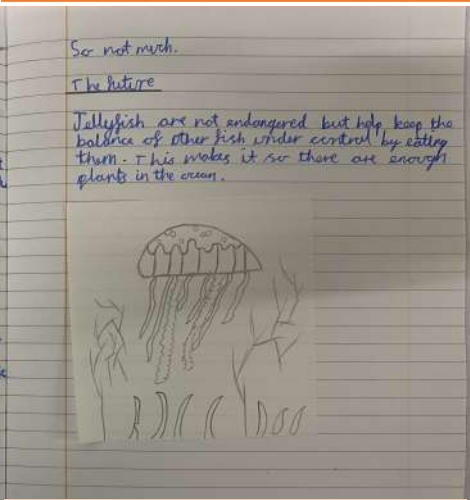 So not much.
The future
Jellyfish are not endangered but help keep the
balance of other fish under control by eating
them. This makes it so there are enough
plants in the ocean.